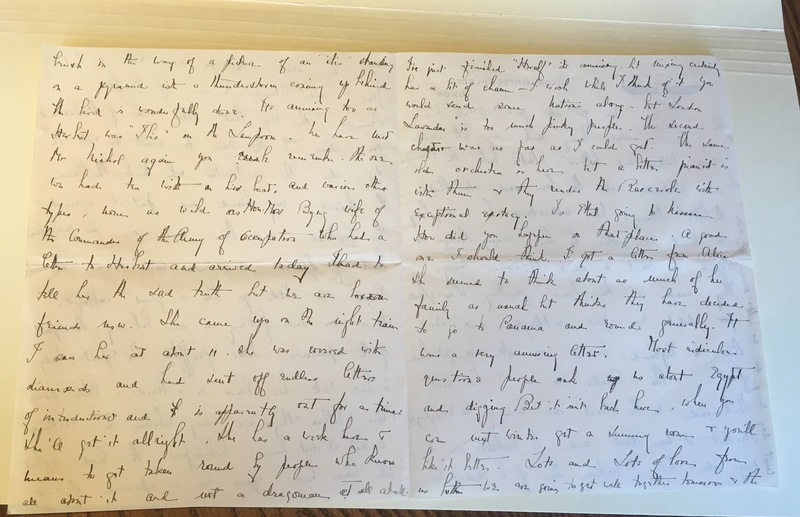 brush in the way of a picture of an ibis standing
on a pyramid with a thunderstorm coming up behind
the bird is wonderfully done. Its amusing too as
Herbert was "Ibis" on the Lampoon. We have met
Mr Nichol again you remember. the one
we had tea with on his boat. and various other
types, none as wild as Mrs Byng wife of
the Commander of the Army of Occupation - who had a
letter to Herbert and arrived today. I had to
tell her the sad truth but we are bosom
friends now. She came up on the night train
I saw her at about 11. She was covered with
diamonds and had sent off endless letters
of introductions and is apparently out for a time.
She'll get it allright. She has a week here &
means to get taken round by people who know
all about it and not a dragoman at all at all.
I've just finished "Himself" its amusing but certainly
has a lot of charm - I wish while I think of it you
would send some along. but London
Lavender" is too much funky people. The second
chapter was as far as I could get. The same
old orchestra is here but a better pianist is
with them & they render the Barcarole with
exceptional ecstacy. Is Ethel going to
How did you happen on that place. A good
one I should think. I got a letter from Alice
She seemed to think about as much of her
family as usual but thinks they have decided
to go to Panama and round generally. It
was a very amusing letter. Most ridiculous
questions people ask us about Egypt
and digging But it isnt bad here, when you
come next winter get a sunny room & you'll
like it better. Lots and Lots of love from
us both We are going to get well together tomorrow & the